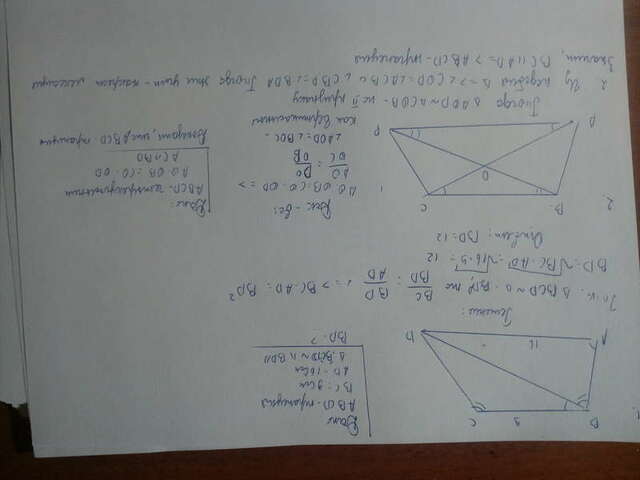 1.
B 9 C
A 16 D
Дано
ABCD - трапеция
BC = 9см
AD - 16см
BD - ?
Решение:
Т. к. Δ BCD ∾ Δ BDA, то BC/BD = BD/AD => BC·AD = BD²
BD = √BC·AD = √16·9 = 12
Ответ: BD = 12
2.
B C
O
A D
Дано:
ABCD - четырёхугольник
AO·OB = CO·OD
Доказать, что ABCD трапеция
Док-во:
1. AO·OB = CO·OD =>
AO/OC = DO/OB
∠AOD = ∠BOC -
как вертикальные
Тогда Δ AOD ∾ Δ COB - по II признаку
2. Из подобия Δ => ∠
Тогда эти углы - накрест лежащие
Значит, BC || AD => ABCD - трапеция